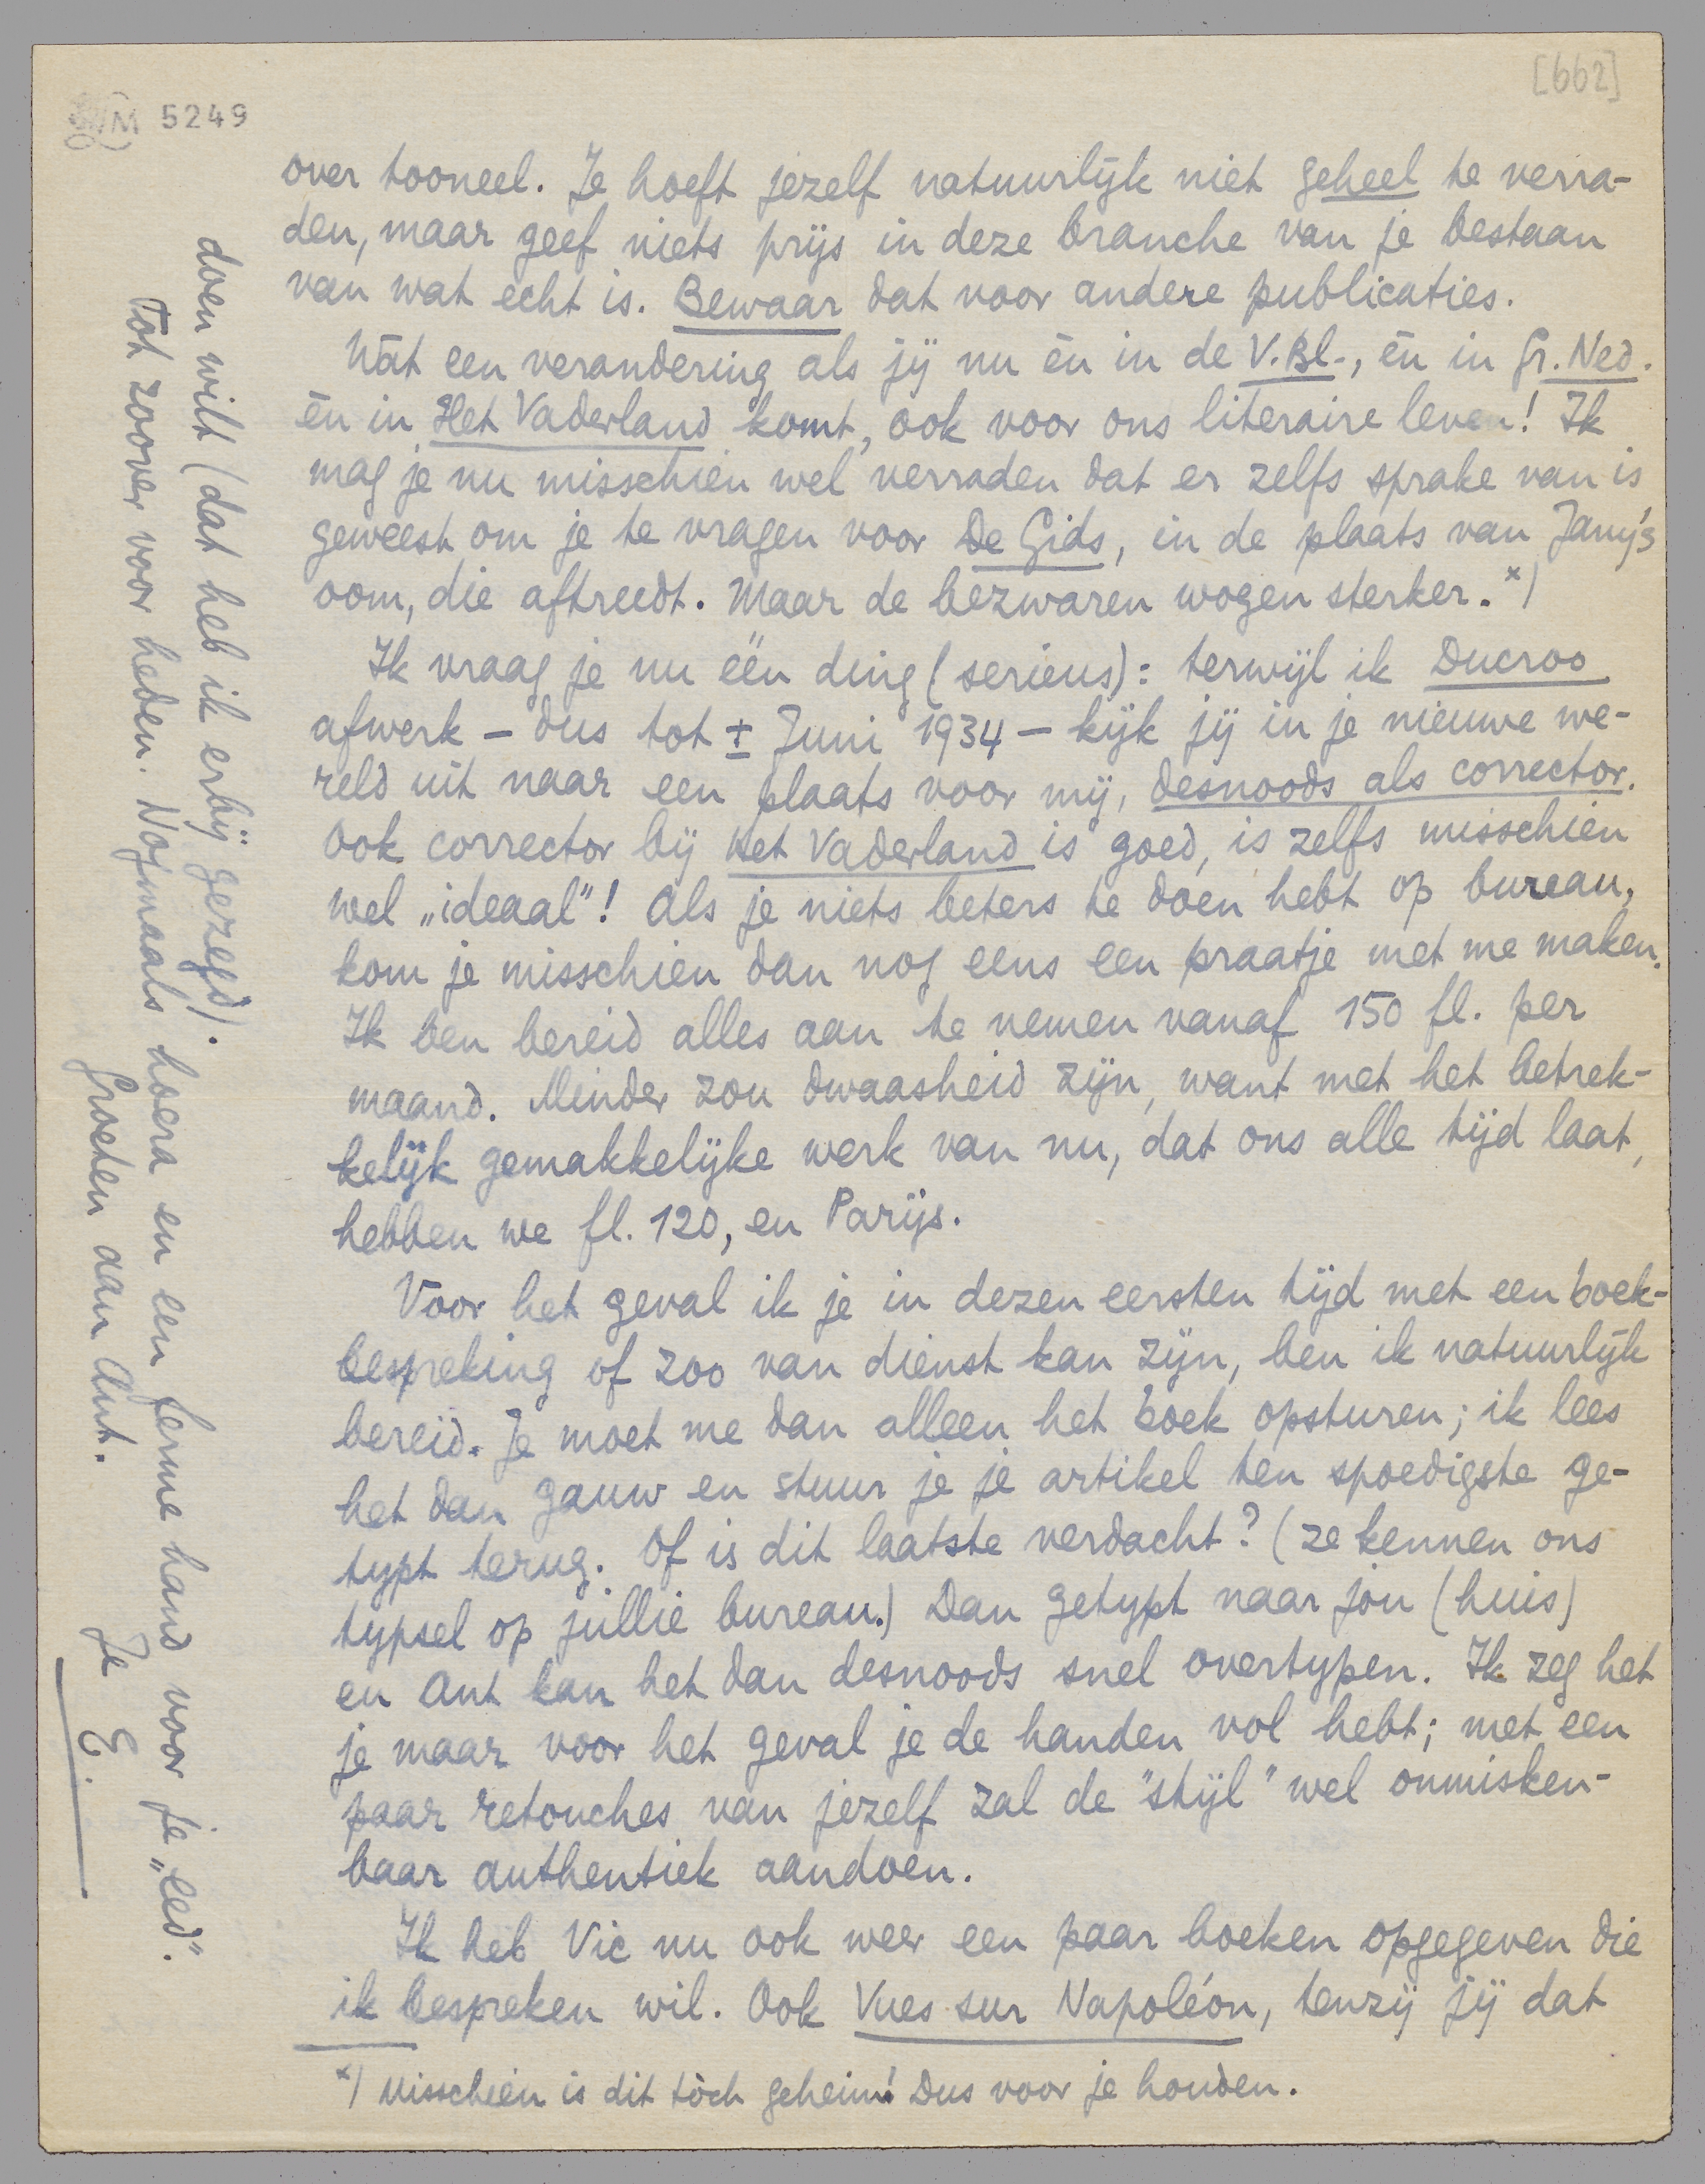 [662]
LM 5249
over tooneel. Je hoeft jezelf natuurlijk niet geheel te verra-
den, maar geef niets prijs in deze branche van je bestaan
van wat echt is. Bewaar dat voor andere publicaties.
Wàt een verandering als jij nu èn in de V.Bl., èn in Gr. Ned.
èn in Het Vaderland komt, ook voor ons literaire leven! Ik
mag je nu misschien wel verraden dat er zelfs sprake van is
geweest om je te vragen voor De Gids, in de plaats van Jany's
oom, die aftreedt. Maar de bezwaren wogen sterker. *)
Ik vraag je nu één ding (serieus): terwijl ik Ducroo
afwerk – dus tot ± Juni 1934 – kijk jij in je nieuwe we-
reld uit naar een plaats voor mij, desnoods als corrector.
Ook corrector bij Het Vaderland is goed, is zelfs misschien
wel „ideaal"! Als je niets beters te doen hebt op bureau,
kom je misschien dan nog eens een praatje met me maken.
Ik ben bereid alles aan te nemen vanaf 150 fl. per
maand. Minder zou dwaasheid zijn, want met het betrek-
kelijk gemakkelijke werk van nu, dat ons alle tijd laat,
hebben we fl. 120, en Parijs.
Voor het geval ik je in dezen eersten tijd met een boek-
bespreking of zoo van dienst kan zijn, ben ik natuurlijk
bereid. Je moet me dan alleen het boek opsturen; ik lees
het dan gauw en stuur je je artikel ten spoedigste ge-
typt terug. Of is dit laatste verdacht? (ze kennen ons
typsel op jullie bureau.) Dan getypt naar jòu (huis)
en Ant kan het dan desnoods snel overtypen. Ik zeg het
je maar voor het geval je de handen vol hebt; met een
paar retouches van jezelf zal de "stijl" wel onmisken-
baar authentiek aandoen.
Ik heb Vic nu ook weer een paar boeken opgegeven die
ik bespreken wil. Ook Vues sur Napoléon, tenzij jij dat
*) Misschien is dit tòch geheim! Dus voor je houden.
doen wilt (dat heb ik erbij gezegd).
Tot zoover voor heden. Nogmaals hoera en een ferme hand voor je „eed".
Groeten aan Ant.
Je E.